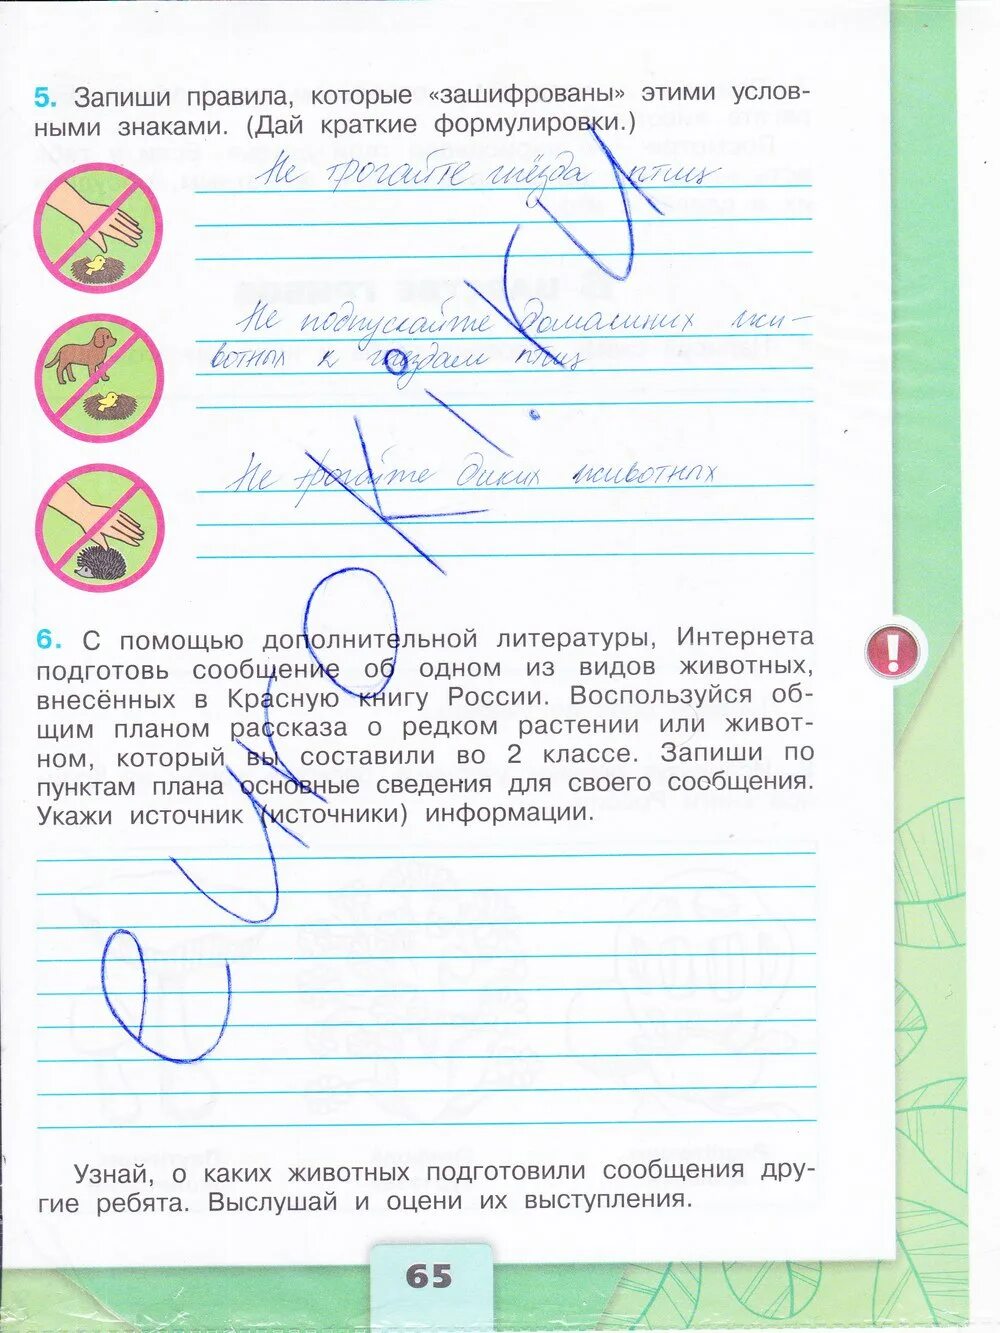 5. Запиши правила, которые «зашифрованы» этими услов-
ными знаками. (Дай краткие формулировки.)
Не трогайте гнёзда птиц
Не подпускайте домашних жи-
вотных к гнёздам птиц
Не трогайте диких животных
6. С помощью дополнительной литературы, Интернета
подготовь сообщение об одном из видов животных,
внесённых в Красную книгу России. Воспользуйся об-
щим планом рассказа о редком растении или живот-
ном, который вы составили во 2 классе. Запиши по
пунктам плана основные сведения для своего сообщения.
Укажи источник (источники) информации.
!
Узнай, о каких животных подготовили сообщения дру-
гие ребята. Выслушай и оцени их выступления.
65